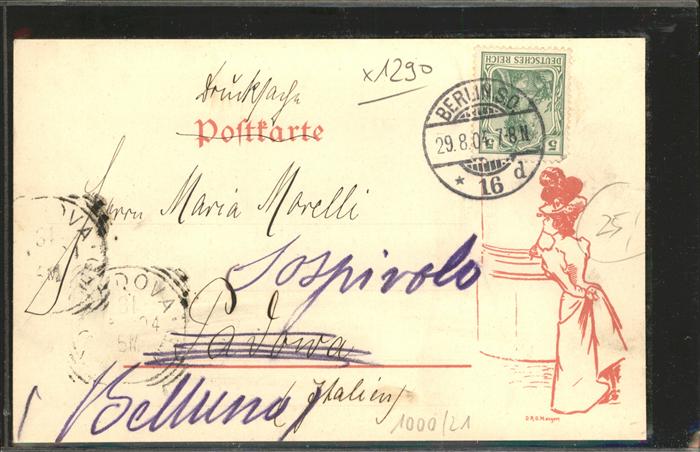 x1290
Drucksache
Postkarte
DEUTSCHES REICH
5 5
BERLIN S.O.
29.8.04. 7-8 N.
* 16 d
Herrn Maria Morelli
Sospirolo
Padova
Belluno
(Italien)
25,
DOVA
31
ADOVA
31
04
1000/21